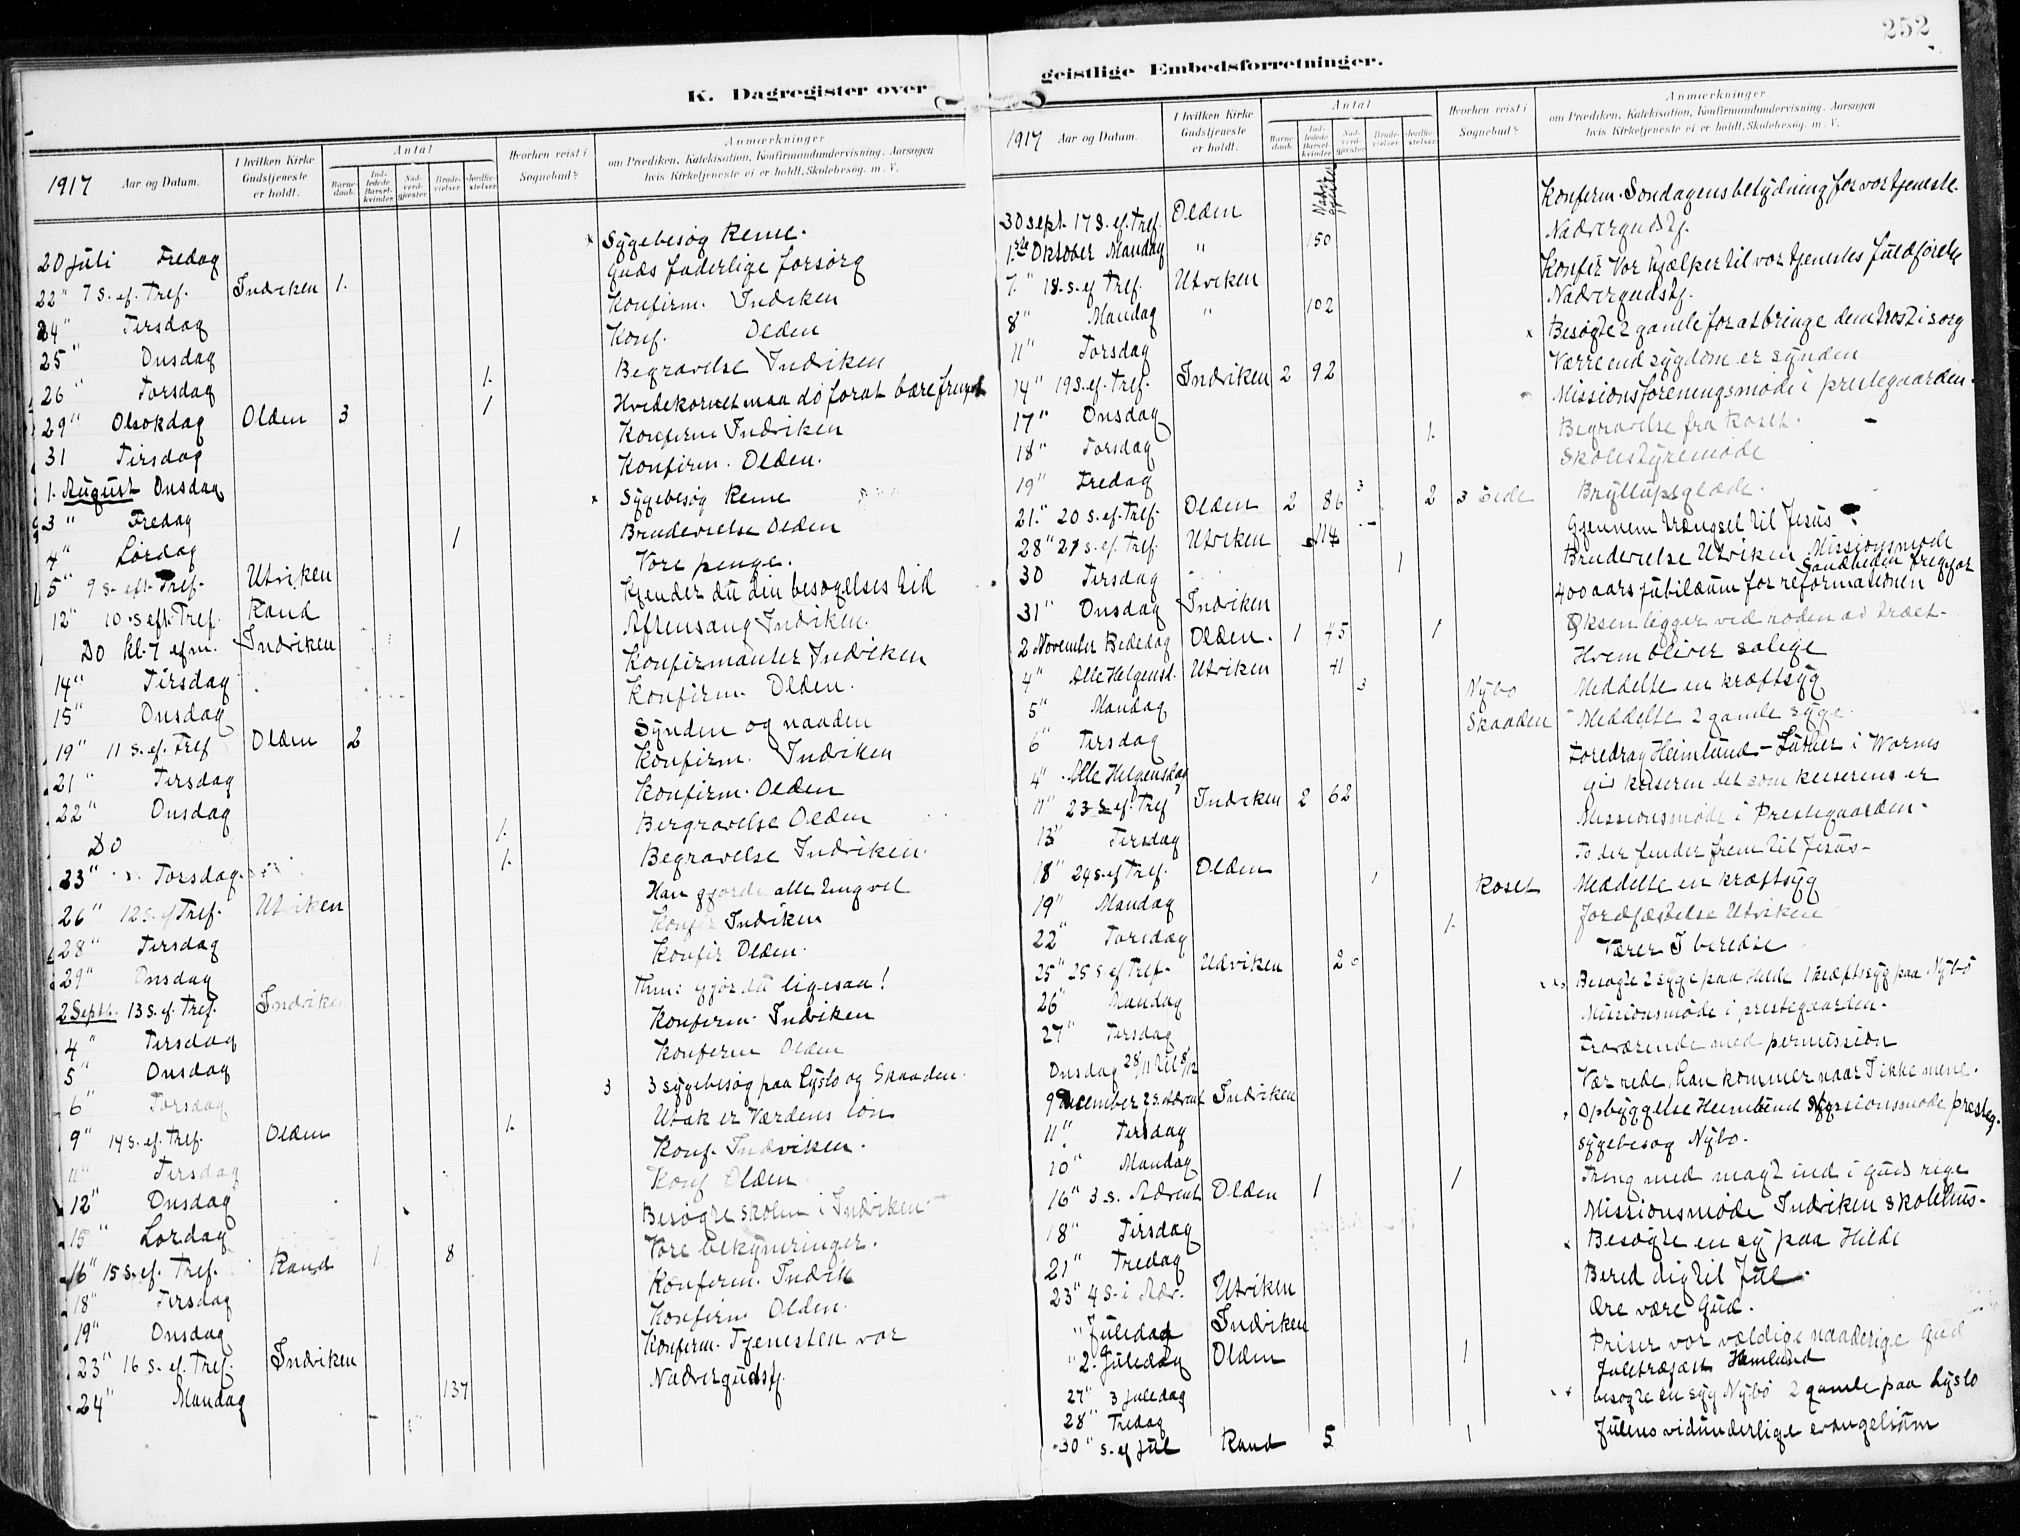 252
K. Dagregister over
1917 Aar og Datum.
I hvilken Kirke Gudstjeneste er holdt.
Antal
Barnedaab. Indledede Barselkvinder Nadverdgjester Brudevielser Jordfæstelser
Hvorhen reist i Sognebud?
Anmærkninger
om Prædiken, Katekisation, Konfirmandundervisning, Aarsagen
hvis Kirketjeneste ei er holdt, Skolebesøg. m. V.
20 Juli Fredag Sygebesøg Reme.
22" 7 S. ef. Tref. Indviken 1. Guds faderlige forsørg
24" Tirsdag Konfirm. Indviken
25" Onsdag Konf. Olden
26" Torsdag 1. Begravelse Indviken
29" Olsokdag Olden 3 1 Hvedekornet maa dø forat bære frugt
31 Tirsdag Konfirm Indviken
1. August Onsdag Konfirm. Olden.
3" Fredag Sygebesøg Reme
4" Lørdag 1 Brudevielse Olden
5" 9 S. eft. Tref. Utviken Vore penge.
12" 10 S eft. Tref. Rand Kjender du din besøgelses tid
Do kl. 7 efm. Indviken Aftensang Indviken.
14" Tirsdag Konfirmanter Indviken
15" Onsdag Konfirm. Olden.
19" 11 S. ef. Tref Olden 2 Synden og naaden
21" Tirsdag Konfirm. Indviken
22" Onsdag Konfirm. Olden
Do 1. Bergravelse Olden
23" Torsdag 1. Begravelse Indviken.
26" 12 S. ef Tref. Utviken Han gjorde alle ting vel
28" Tirsdag Konfir Indviken
29" Onsdag Konfir Olden.
2 Septr. 13 S. ef. Tref. Indviken Thi: gjør du ligesaa!
4" Tirsdag Konfirm. Indviken
5" Onsdag Konfirm Olden
6" Torsdag 3 3 sygebesøg paa Lyslo og Skaaden.
9" 14 S. ef. Tref. Olden 1. Utak er Verdens løn
11" Tirsdag Konf. Indviken.
12" Onsdag Konf Olden
15" Lørdag Besøgte skolen i Indviken
16" 15 S. ef. Tref. Rand 1 8 Vore bekymringer.
18" Tirsdag Konfirm. Indvik
19" Onsdag Konfirm Olden.
23" 16 S. ef. Tref. Indviken Konfirm. Tjenesten vor
24" Mandag 137 Nadvergudstj.
geistlige Embedsforretninger.
1917 Aar og Datum.
I hvilken Kirke Gudstjeneste er holdt.
Antal
Barnedaab. Indledede Barselkvinder Nadverdgjester Brudevielser Jordfæstelser
Hvorhen reist i Sognebud?
Anmærkninger
om Prædiken, Katekisation, Konfirmandundervisning, Aarsagen
hvis Kirketjeneste ei er holdt, Skolebesøg. m. V.
30 Sept. 17 S. ef. Tref. Olden Konfirm. Søndagens betydning for vor tjeneste.
1.ste Oktober Mandag " 150 Nadvergudstj.
7." 18. S. ef Tref. Utviken Konfir Vor hjælper til vor tjenestes fuldførelse
8" Mandag " 102 Nadvergudstj.
11" Torsdag Besøgte 2 gamle for at bringe dem trøst i sorg
14" 19 S. ef. Tref. Indviken 2 92 Værre end sygdom er synden
17" Onsdag Missionsforeningsmøde i prestegaarden.
18" Torsdag 1. Begravelse fra Roset.
19" Fredag Skolestyremøde
21." 20 S. ef. Tref. Olden 2 86 3 2 3 Eide Bryllupsglæde.
28" 21 S. ef. Tref. Utviken 114 Gjennem trængsel til Jesus
30 Tirsdag 1 Brudevielse Utviken Missionsmøde
31" Onsdag Indviken 400 aars jubilæum for reformationen Sandheden fregjør
2 November Bededag Olden. 1 45 1 Øksen ligger ved roden av træet.
4" Alle Helgensd. Utviken 41 Hvem bliver salige
5" Mandag 3 Nybø Meddelte en kræftsyg
6" Tirsdag Skaaden Meddelte 2 gamle syge.
4" Alle Helgensdag Foredrag Heimlund - Luther i Worms
11" 23 S. ef. Tref Indviken 2 62 Giv keiseren det som keiserens er
13" Tirsdag Missionsmøde i Prestegaarden.
18" 24 S. ef Tref. Olden To der finder frem til Jesus.
19" Mandag 1 Roset Meddelte en kræftsyg
22" Torsdag 1. Jordfæstelse Utviken
25" 25 S ef Tref. Udviken 20 Værer I beredte
26" Mandag Besøgte 2 syge paa Hilde 1 kræftsyg paa Nybø
27" Tirsdag Missionsmøde i prestegaarden.
Onsdag 28/11 til 8/12 Fraværende med permission
9 December 2 S. Advent Indviken Vær rede, han kommer naar I ikke mene.
11" Tirsdag Opbyggelse Heimlund Missionsmøde presteg.
10" Mandag Sygebesøg Nybø.
16" 3 S. Advent Olden 1 1 Træng med magt ind i Guds rige
18" Tirsdag Missionsmøde Indviken skolehus.
21" Fredag Besøgte en syg paa Hilde
23" 4 S. i Adv. Utviken Bered dig til Jul.
" Juledag Indviken Ære være Gud.
" 2. Juledag Olden 1 Priser vor vældige naaderige Gud
27" 3 Juledag Juletræfest Heimlund
28" Fredag besøgte en syg Nybø 2 gamle paa Lyslo
30" S. ef Jul Rand 5 1 Julens vidunderlige evangelium